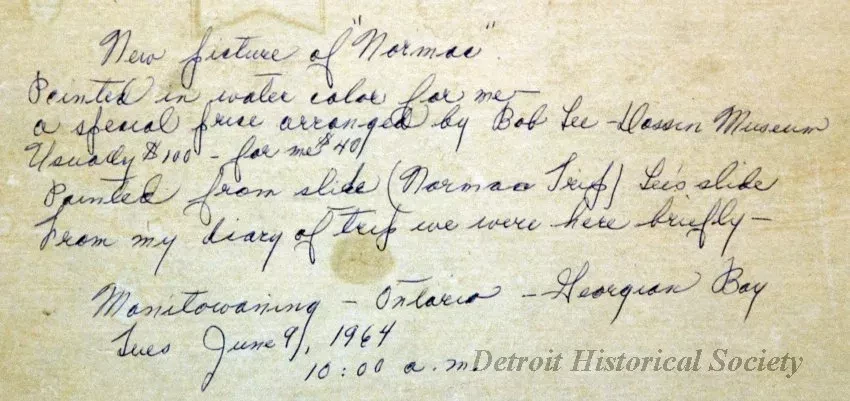 New picture of "Normac"
Painted in water color for me—
a special price arranged by Bob Lee - Dossin Museum
Usually $100 - for me $40
Painted from slide (Normac Trip) Lee's slide
From my diary of trip we were here briefly —
Manitowaning - Ontario - Georgian Bay
Tues June 9, 1964
10:00 a.m.
Detroit Historical Society